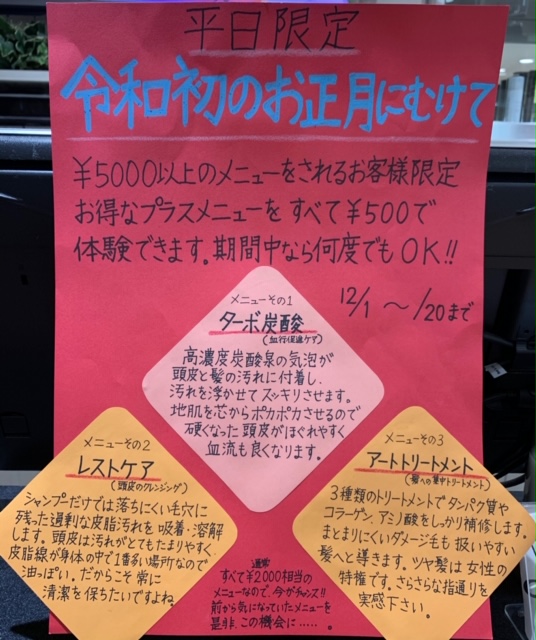 平日限定
令和初のお正月にむけて
¥5000以上のメニューをされるお客様限定
お得なプラスメニューを すべて¥500で
体験できます。期間中なら何度でもOK!!
12/1 〜 /20まで
メニューその1
ターボ炭酸
(血行促進ケア)
高濃度炭酸泉の気泡が
頭皮と髪の汚れに付着し、
汚れを浮かせてスッキリさせます。
地肌を芯からポカポカさせるので
硬くなった頭皮がほぐれやすく
血流も良くなります。
メニューその2
レストケア
(頭皮のクレンジング)
シャンプーだけでは落ちにくい毛穴に
残った過剰な皮脂汚れを吸着・溶解
します。頭皮は汚れがとてもたまりやすく
皮脂線が身体の中で1番多い場所なので
油っぽい。だからこそ常に
清潔を保ちたいですよね。
メニューその3
アートトリートメント
(髪への集中トリートメント)
3種類のトリートメントでタンパク質や
コラーゲン、アミノ酸をしっかり補修します。
まとまりにくいダメージ毛も扱いやすい
髪へと導きます。ツヤ髪は女性の
特権です。さらさらな指通りを
実感下さい。
通常
すべて¥2000相当の
メニューなので、今がチャンス!!
前から気になっていたメニューを
是非、この機会に……。